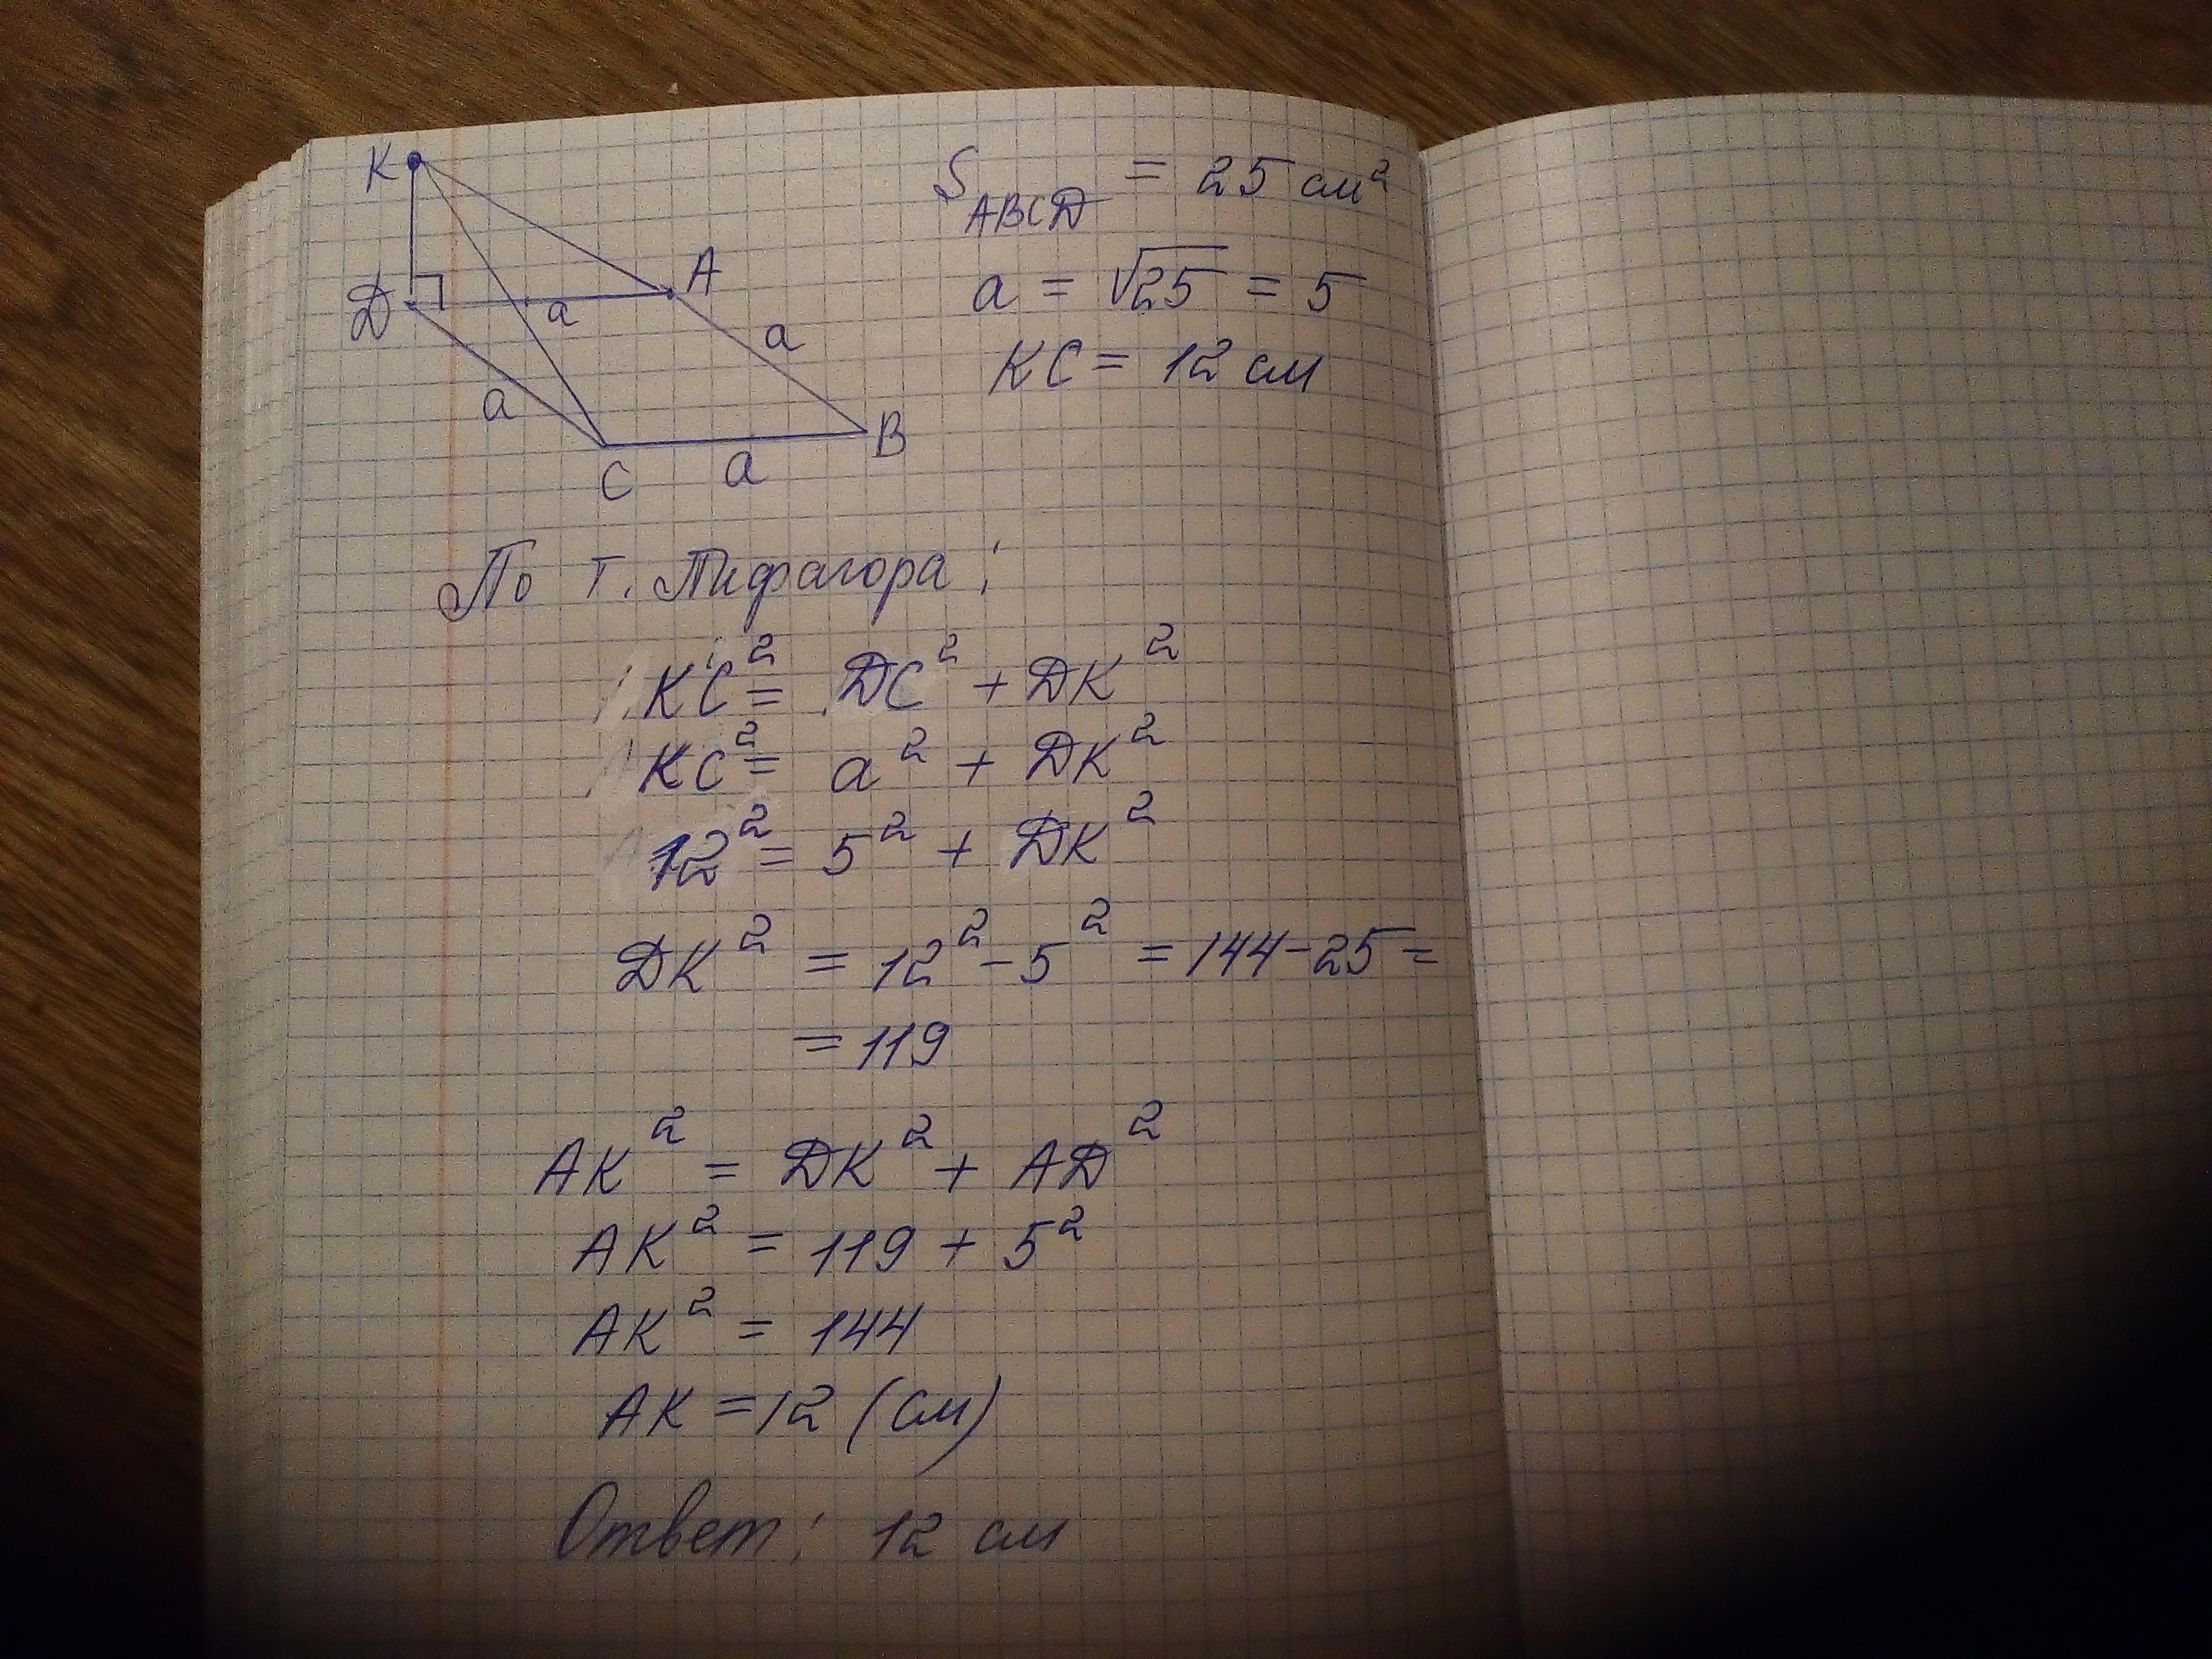 K
A
D
a
a
a
a
C
B
S ABCD = 25 см²
a = √25 = 5
KC = 12 см
По т. Пифагора:
KC² = DC² + DK²
KC² = a² + DK²
12² = 5² + DK²
DK² = 12² - 5² = 144 - 25 =
= 119
AK² = DK² + AD²
AK² = 119 + 5²
AK² = 144
AK = 12 (см)
Ответ: 12 см